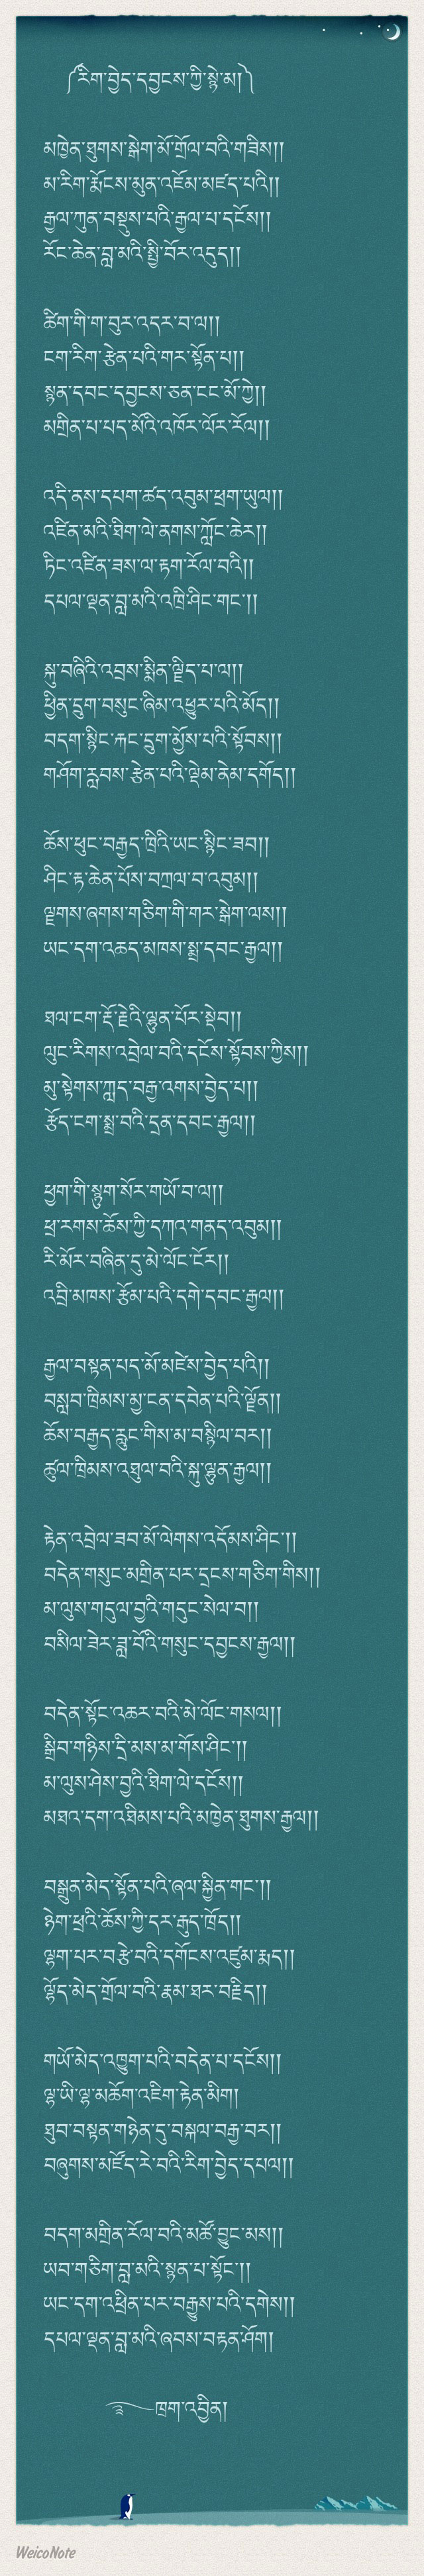 ༼རིག་བྱེད་དབྱངས་ཀྱི་སྙེ་མ།༽
མཁྱེན་ཐུགས་སྒེག་མོ་གྲོལ་བའི་གཟིས།།
མ་རིག་རྨོངས་མུན་འཇོམ་མཛད་པའི།།
རྒྱལ་ཀུན་བསྡུས་པའི་རྒྱལ་པ་དངོས།།
རོང་ཆེན་བླ་མའི་སྤྱི་བོར་འདུད།།
ཚིག་གི་ག་བུར་འདར་བ་ལ།།
ངག་རིག་རྩེན་པའི་གར་སྟོན་པ།།
སྙན་དབང་དབྱངས་ཅན་ངང་མོ་ཀྱེ།།
མགྲིན་པ་པད་མོའི་འཁོར་ལོར་རོལ།།
འདི་ནས་དཔག་ཚད་འབུམ་ཕྲག་ཡུལ།།
འཛིན་མའི་ཐིག་ལེ་ནགས་ཀློང་ཆེར།།
ཏིང་འཛིན་ཟས་ལ་རྟག་རོལ་བའི།།
དཔལ་ལྡན་བླ་མའི་འཁྲི་ཤིང་གང་།།
སྐུ་བཞིའི་འབྲས་སྨིན་ལྗིད་པ་ལ།།
ཕྱིན་དྲུག་བསུང་ཞིམ་འཕྱུར་པའི་མོད།།
བདག་སྙིང་རྐང་དྲུག་མྱོས་པའི་སྟོབས།།
གཤོག་རླབས་རྩེན་པའི་ལྡེམ་ནེམ་དགོད།།
ཆོས་ཕུང་བརྒྱད་ཁྲིའི་ཡང་སྙིང་ཟབ།།
ཤིང་རྟ་ཆེན་པོས་བཀྲལ་བ་འབུམ།།
ལྗགས་ཞགས་གཅིག་གི་གར་སྒེག་ལས།།
ཡང་དག་འཆད་མཁས་སྨྲ་དབང་རྒྱལ།།
ཐལ་ངག་རྡོ་རྗེའི་ལྷུན་པོར་སྡེབ།།
ལུང་རིགས་འབྲེལ་བའི་དངོས་སྟོབས་ཀྱིས།།
མུ་སྟེགས་ཀླད་བརྒྱ་འགས་བྱེད་པ།།
རྩོད་ངག་སྨྲ་བའི་དྲན་དབང་རྒྱལ།།
ཕྱག་གི་སྙུག་སོར་གཡོ་བ་ལ།།
ཕྲ་རགས་ཆོས་ཀྱི་དཀའ་གནད་འབུམ།།
རི་མོར་བཞིན་དུ་མེ་ལོང་ངོར།།
འབྲི་མཁས་རྩོམ་པའི་དགེ་དབང་རྒྱལ།།
རྒྱལ་བསྟན་པད་མོ་མཛེས་བྱེད་པའི།།
བསླབ་ཁྲིམས་མྱ་ངན་དབེན་པའི་ལྗོན།།
ཆོས་བརྒྱད་རླུང་གིས་མ་བསྙིལ་བར།།
ཚུལ་ཁྲིམས་འཐུལ་བའི་སྐུ་ལྷུན་རྒྱལ།།
རྟེན་འབྲེལ་ཟབ་མོ་ལེགས་འདོམས་ཤིང་།།
བདེན་གསུང་མགྲིན་པར་དྲངས་གཅིག་གིས།།
མ་ལུས་གདུལ་བྱའི་གདུང་སེལ་བ།།
བསིལ་ཟེར་ཟླ་བོའི་གསུང་དབྱངས་རྒྱལ།།
བདེན་སྟོང་འཆར་བའི་མེ་ལོང་གསལ།།
སྒྲིབ་གཉིས་དྲི་མས་མ་གོས་ཤིང་།།
མ་ལུས་ཤེས་བྱའི་ཐིག་ལེ་དངོས།།
མཐའ་དག་འཐིམས་པའི་མཁྱེན་ཐུགས་རྒྱལ།།
བསྒྲུན་མེད་སྟོན་པའི་ཞལ་སྐྱིན་གང་།།
ཉེག་ཕྲའི་ཆོས་ཀྱི་དར་རྒུད་ཁྲོད།།
ལྷག་པར་བརྩེ་བའི་དགོངས་འཛུམ་རྨད།།
ལྷོད་མེད་གྲོལ་བའི་རྣམ་ཐར་བརྗིད།།
གཡོ་མེད་འཁྱུག་པའི་བདེན་པ་དངོས།།
ལྷ་ཡི་ལྷ་མཆོག་འཇིག་རྟེན་མིག།
ཐུབ་བསྟན་གཉེན་དུ་བསྐལ་བརྒྱ་བར།།
བཞུགས་མཛོད་རེ་བའི་རིག་བྱེད་དཔལ།།
བདག་མགྲིན་རོལ་བའི་མཚོ་བྱུང་མས།།
ཡབ་གཅིག་བླ་མའི་སྙན་པ་སྟོང་།།
ཡང་དག་འཕྲིན་པར་བརྒྱུས་པའི་དགེས།།
དཔལ་ལྡན་བླ་མའི་ཞབས་བརྟན་ཤོག།
ཁྲག་འབྱིན།
WeicoNote